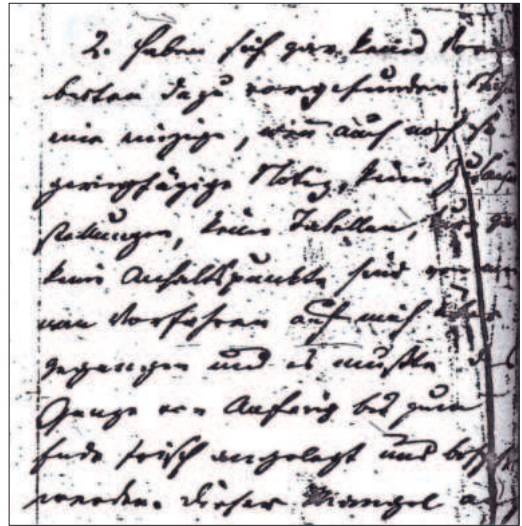 2. Haben sich gar keine Vorar
beiten dazu vorgefunden, Nicht
eine einzige, wenn auch noch so
geringfügige Notiz, keine
stellungen, keine Tabellen, kurz gar
keine Anhaltspunkte sind von
van Vorfahren auf mich über
gegangen und es mußte das
Ganze von Anfang bis zum
Ende frisch angelegt und
werden. Dieser Mangel an